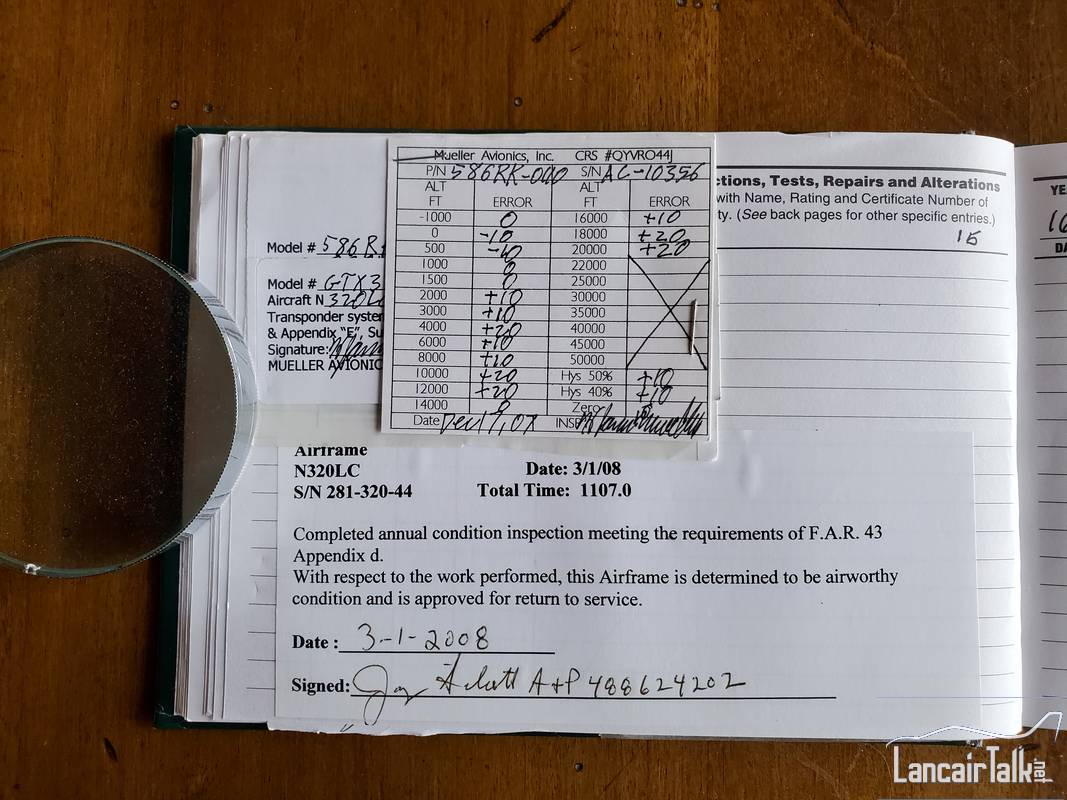 Mueller Avionics, Inc. CRS #QYVRO44J
P/N 586RK-000 S/N AC-10356
ALT FT ERROR ALT FT ERROR
-1000 0 16000 +10
0 -10 18000 +20
500 -10 20000 +20
1000 0 22000
1500 0 25000
2000 +10 30000
3000 +10 35000
4000 +20 40000
6000 +10 45000
8000 +10 50000
10000 +20 Hys 50% +10
12000 +20 Hys 40% +10
14000 0 Zero
Date Dec 17, 07 INSP
ctions, Tests, Repairs and Alterations
with Name, Rating and Certificate Number of
ty. (See back pages for other specific entries.)
15
Model # 586R
Model # GTX3
Aircraft N 320L
Transponder syste
& Appendix "E", Su
Signature:
MUELLER AVIONIC
Airframe
N320LC Date: 3/1/08
S/N 281-320-44 Total Time: 1107.0
Completed annual condition inspection meeting the requirements of F.A.R. 43
Appendix d.
With respect to the work performed, this Airframe is determined to be airworthy
condition and is approved for return to service.
Date : 3-1-2008
Signed: A+P 488624202
YE
16
DA
LancairTalk.net